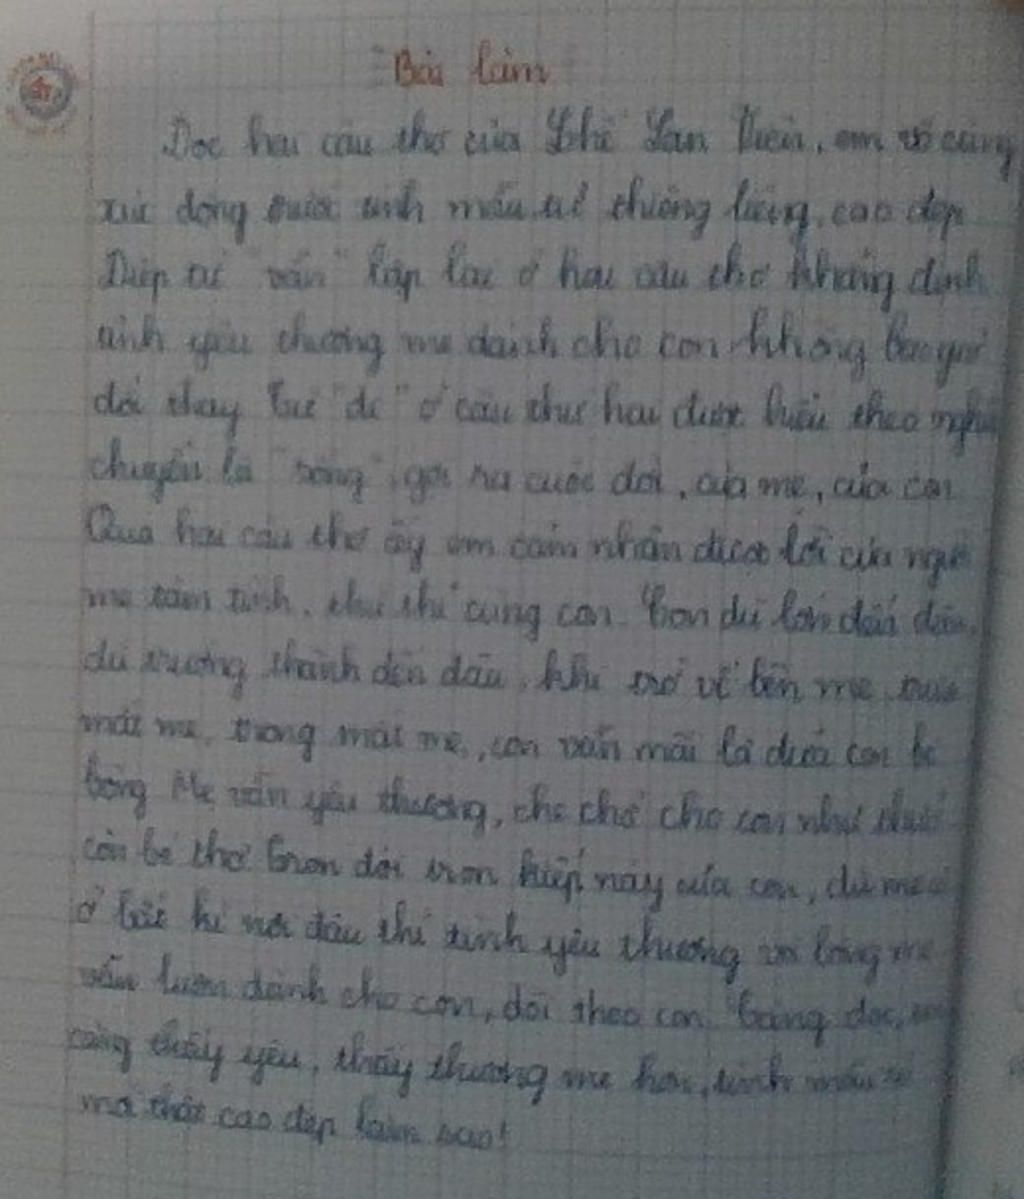 Bài làm
Đọc hai câu thơ của Chế Lan Viên, em vô cùng
xúc động trước tình mẫu tử thiêng liêng, cao đẹp
Điệp từ "vẫn" lặp lại ở hai câu thơ khẳng định
tình yêu thương mẹ dành cho con không bao giờ
đổi thay Từ "đi" ở câu thứ hai được hiểu theo nghĩa
chuyển là "sống", gợi ra cuộc đời, của mẹ, của con
Qua hai câu thơ ấy em cảm nhận được lời của người
mẹ tâm tình, thủ thỉ cùng con. Con dù lớn đến đâu,
dù trưởng thành đến đâu, khi trở về bên mẹ, trước
mắt mẹ, trong mắt mẹ, con vẫn mãi là đứa con bé
bỏng Mẹ vẫn yêu thương, che chở cho con như thuở
còn bé thơ Trọn đời trọn kiếp này của con, dù mẹ
ở bất kì nơi đâu thì tình yêu thương và lòng mẹ
vẫn luôn dành cho con, dõi theo con. Càng đọc, em
càng thấy yêu, thấy thương mẹ hơn, tình mẫu tử
mới thật cao đẹp làm sao!